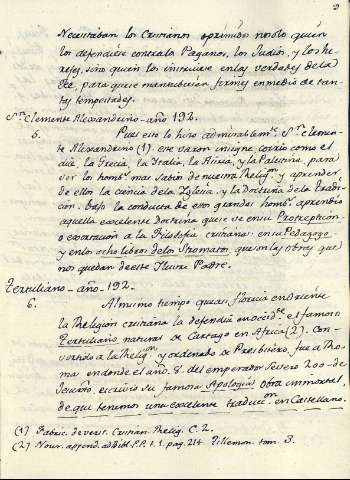 Necesitaban los Cristianos oprimidos no solo quien
los defendiese contra los Paganos, los Judios, y los he-
rejes, sino quien los instruiese en las verdades de la
Fee, para que se mantubieran firmes en medio de tan-
tas tempestades.
Sn. Clemente Alexandrino - año 192.
5. Pues esto lo hizo admirablemte. Sn. Clemen-
te Alexandrino (1). este varon insigne corrio como el
dia, la Grecia, la Italia, la Asiria, y la Palestina, para
ver los hombs. mas sabios de nuestra Religon. y aprender
de ellos la ciencia de la Iglesia. y la Doctrina de la tradi-
cion. bajo la conducta de estos grandes hombs. aprendio
aquella excelente doctrina que se ve en su Protrepticon
o exortacion a la Filosofia cristiana: en su Pedagogo
y en los ocho libros de los Stromatos, que son las obras que
nos quedan de este Ilustre Padre.
Tertuliano - año - 192.
6. Al mismo tiempo que asi florecia en Oriente
la Religion cristiana la defendia en occide. el famoso
Tertuliano natural de Cartago en Africa (2). Con-
vertido a la Religon. y ordenado de Presbitero, fue a Ro-
ma en donde el año 8. del emperador Severo 200 - de
Jesucrto. escribio su famosa Apologia obra immortal,
de que tenemos una excelente traduccon. en Castellano.
(1) Fabric. de verit. Cristian. Relig. C. 2.
(2) Nour. append. ad Bibl. P.P. t. 1. pag. 214 Tillemon. tom. 3.